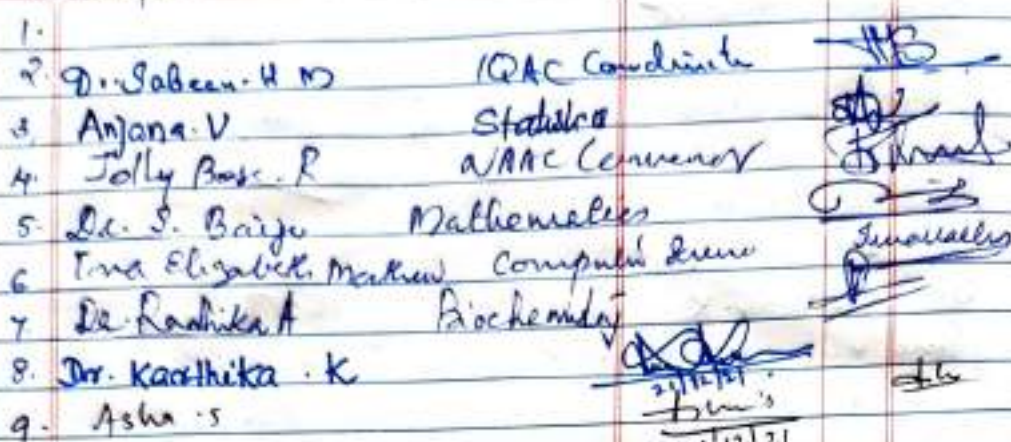 1.
2. D. Sabeen. H M IQAC Coordinate
3. Anjana. V Statistics
4. Jolly Bose. R NAAC Convenor
5. Dr. S. Baiju Mathematics
6 Tina Elizabeth Mathew Computer Science
7 Dr. Radhika A Biochemistry
8. Dr. Karthika . K 21/12/21
9. Asha . S